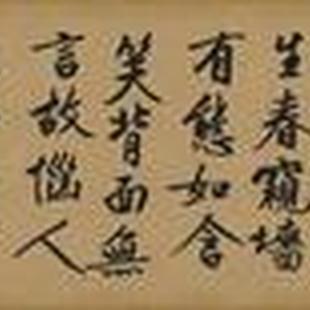 生春窺墻
有態如含
笑背面無
言故惱人